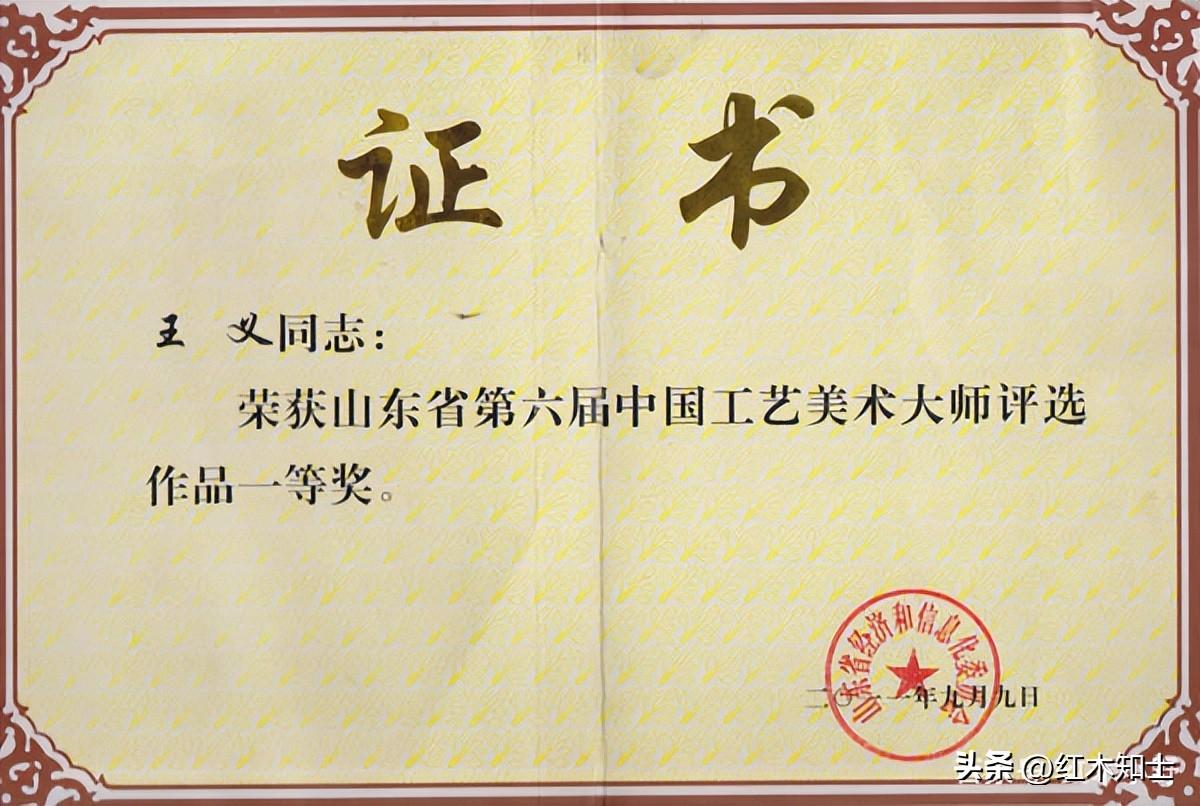 证 书
王 义同志：
荣获山东省第六届中国工艺美术大师评选
作品一等奖。
山东省经济和信息化委员会
二〇一一年九月九日
头条 @红木知士